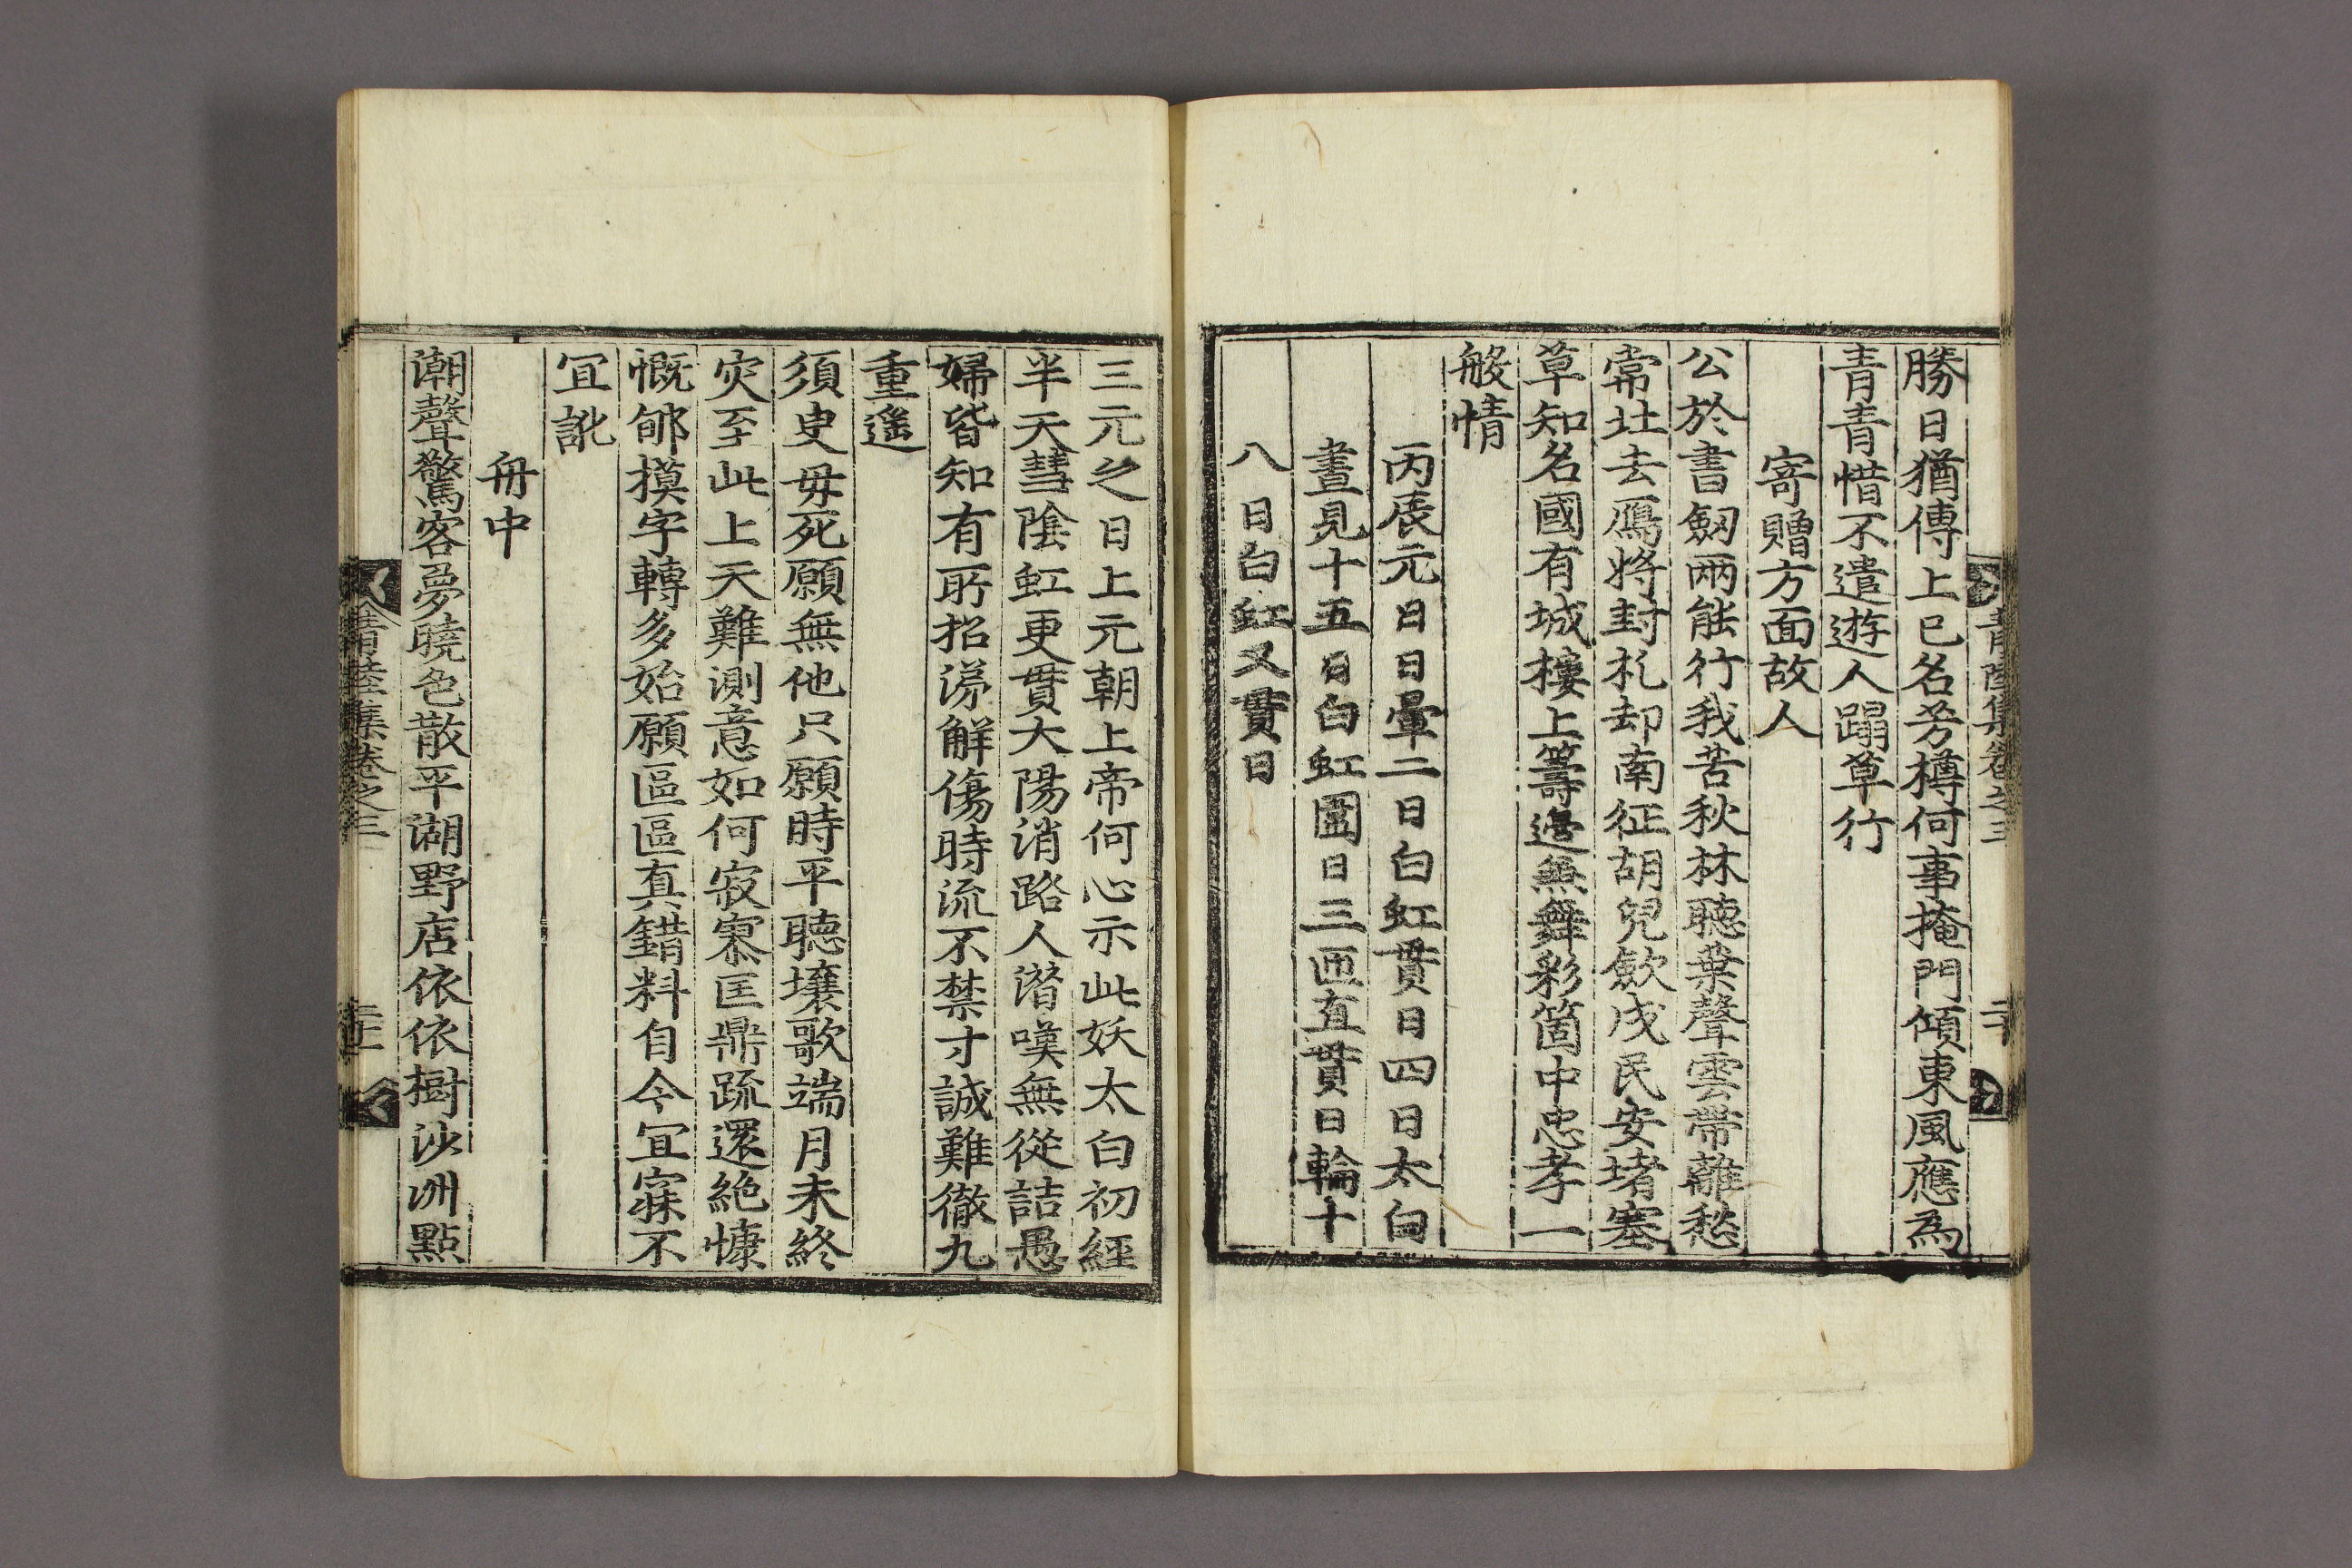 青陸集卷之三
勝日猶傳上巳名芳樽何事掩門傾東風應爲
青青惜不遣遊人蹋草行
寄贈方面故人
公於書劒兩能行我苦秋林聽葉聲雲帶離愁
常壯去鴈將封札却南征胡兒歛戍民安堵塞
草知名國有城樓上籌邊無舞彩箇中忠孝一
般情
丙辰元日日暈二日白虹貫日四日太白
晝見十五日白虹圍日三匝直貫日輪十
八日白虹又貫日
三元之日上元朝上帝何心示此妖太白初經
半天彗陰虹更貫大陽消路人潛嘆無從詰愚
婦皆知有所招涕觧傷時流不禁寸誠難徹九
重遙
須臾毋死願無他只願時平聽壤歌端月未終
灾至此上天難測意如何寂寥匡鼎疏還絶慷
慨郇摸字轉多始願區區真錯料自今冝寐不
冝訛
舟中
潮聲驚客夢曉色散平湖野店依依樹沙洲點
青陸集卷之三